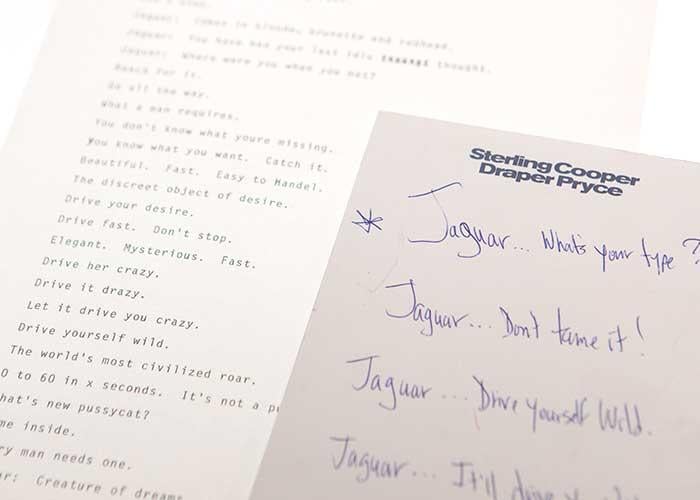 Jaguar: Comes in blonde, brunette and redhead.
Jaguar: You have had your last idle thought.
Jaguar: Where were you when you met?
Reach for it.
Go all the way.
What a man requires.
You don't know what youre missing.
you know what you want. Catch it.
Beautiful. Fast. Easy to Handel.
The discreet object of desire.
Drive your desire.
Drive fast. Don't stop.
Elegant. Mysterious. Fast.
Drive her crazy.
Drive it drazy.
Let it drive you crazy.
Drive yourself wild.
The world's most civilized roar.
0 to 60 in x seconds. It's not a
hat's new pussycat?
me inside.
ry man needs one.
ar: Creature of dreams
Sterling Cooper
Draper Pryce
* Jaguar... What's your type?
Jaguar... Don't tame it!
Jaguar... Drive yourself Wild.
Jaguar... It'll drive